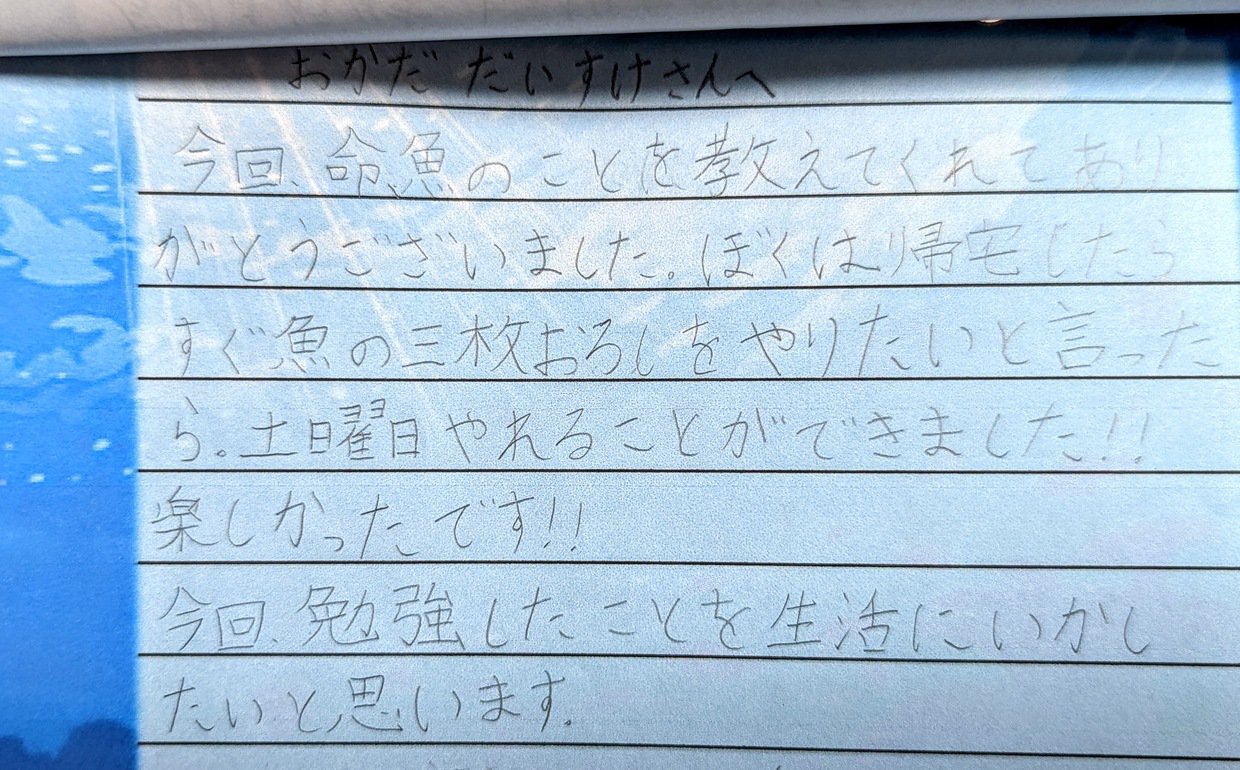 おかだ だいすけさんへ
今回、命、魚のことを教えてくれてあり
がとうございました。ぼくは帰宅したら
すぐ魚の三枚おろしをやりたいと言った
ら。土曜日やれることができました!!
楽しかったです!!
今回、勉強したことを生活にいかし
たいと思います。